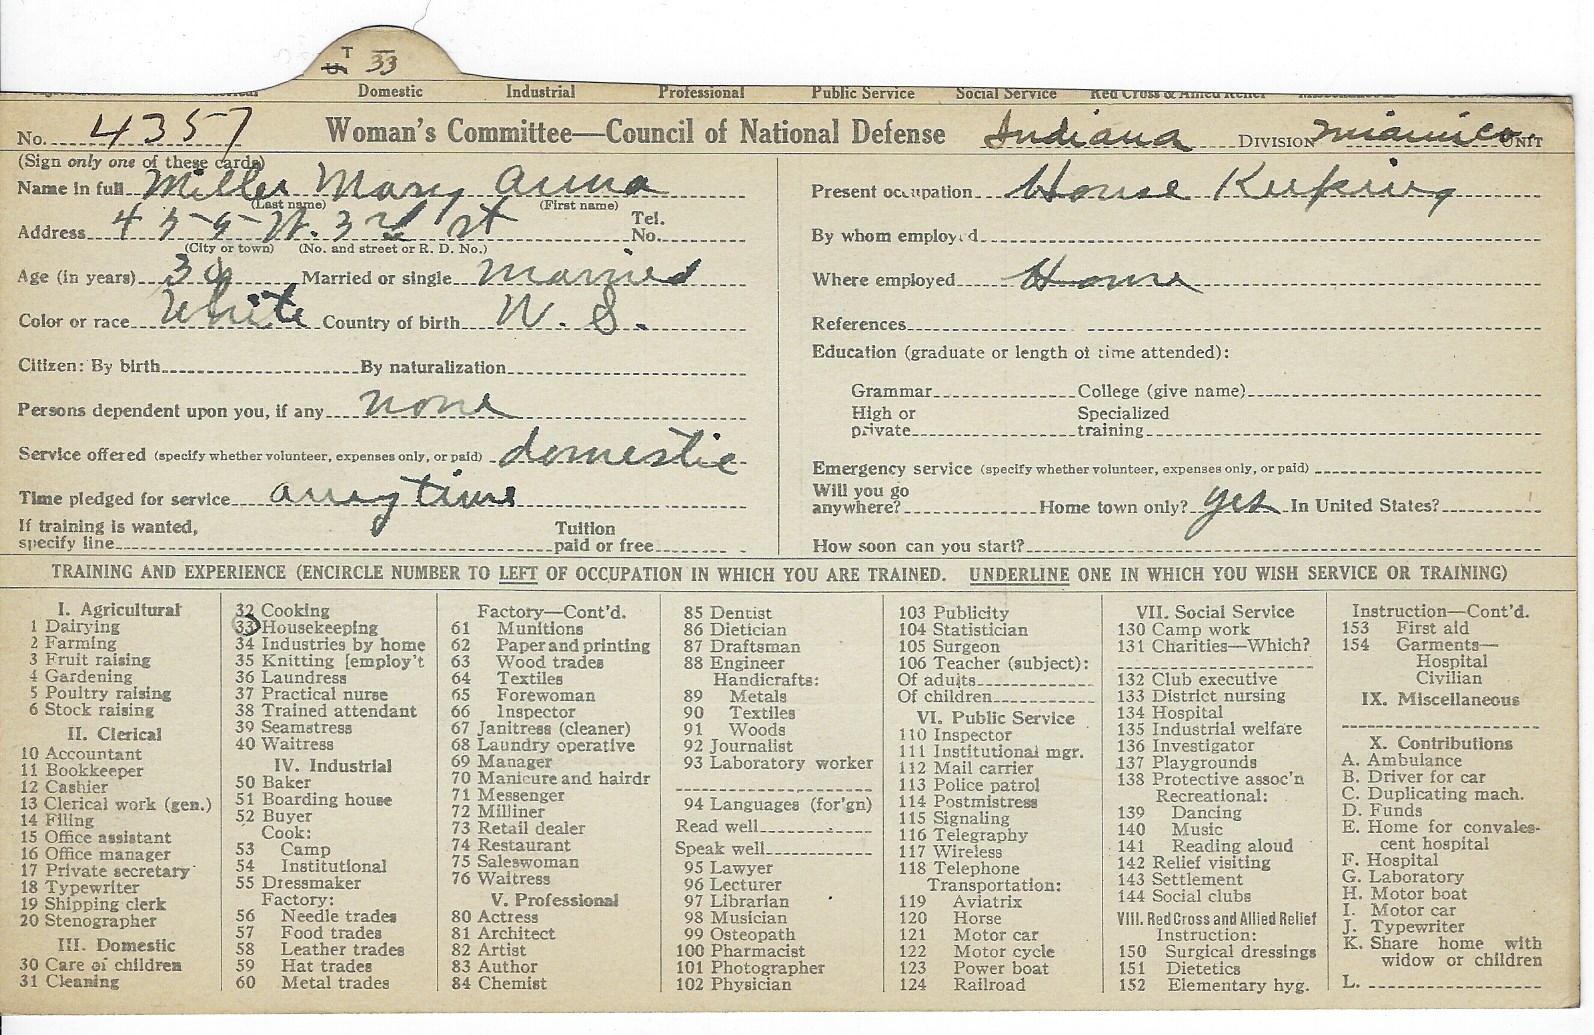 T 33
Domestic Industrial Professional Public Service Social Service Red Cross & Allied Relief
No. 4357 Woman's Committee—Council of National Defense Indiana DIVISION Miami Co. UNIT
(Sign only one of these cards)
Name in full Miller Mary Anna
(Last name) (First name)
Address 455 W. 3rd st Tel. No.
(City or town) (No. and street or R. D. No.)
Age (in years) Married or single married
Color or race White Country of birth U. S.
Citizen: By birth By naturalization
Persons dependent upon you, if any none
Service offered (specify whether volunteer, expenses only, or paid) domestic
Time pledged for service any time
If training is wanted, specify line Tuition paid or free
Present occupation House Keeping
By whom employed
Where employed Home
References
Education (graduate or length of time attended):
Grammar College (give name)
High or private Specialized training
Emergency service (specify whether volunteer, expenses only, or paid)
Will you go anywhere? Home town only? yes In United States?
How soon can you start?
TRAINING AND EXPERIENCE (ENCIRCLE NUMBER TO LEFT OF OCCUPATION IN WHICH YOU ARE TRAINED. UNDERLINE ONE IN WHICH YOU WISH SERVICE OR TRAINING)
I. Agricultural
1 Dairying
2 Farming
3 Fruit raising
4 Gardening
5 Poultry raising
6 Stock raising
II. Clerical
10 Accountant
11 Bookkeeper
12 Cashier
13 Clerical work (gen.)
14 Filing
15 Office assistant
16 Office manager
17 Private secretary
18 Typewriter
19 Shipping clerk
20 Stenographer
III. Domestic
30 Care of children
31 Cleaning
32 Cooking
33 Housekeeping
34 Industries by home
35 Knitting [employ't
36 Laundress
37 Practical nurse
38 Trained attendant
39 Seamstress
40 Waitress
IV. Industrial
50 Baker
51 Boarding house
52 Buyer
Cook:
53 Camp
54 Institutional
55 Dressmaker
Factory:
56 Needle trades
57 Food trades
58 Leather trades
59 Hat trades
60 Metal trades
Factory—Cont'd.
61 Munitions
62 Paper and printing
63 Wood trades
64 Textiles
65 Forewoman
66 Inspector
67 Janitress (cleaner)
68 Laundry operative
69 Manager
70 Manicure and hairdr
71 Messenger
72 Milliner
73 Retail dealer
74 Restaurant
75 Saleswoman
76 Waitress
V. Professional
80 Actress
81 Architect
82 Artist
83 Author
84 Chemist
85 Dentist
86 Dietician
87 Draftsman
88 Engineer
Handicrafts:
89 Metals
90 Textiles
91 Woods
92 Journalist
93 Laboratory worker
94 Languages (for'gn)
Read well
Speak well
95 Lawyer
96 Lecturer
97 Librarian
98 Musician
99 Osteopath
100 Pharmacist
101 Photographer
102 Physician
103 Publicity
104 Statistician
105 Surgeon
106 Teacher (subject):
Of adults
Of children
VI. Public Service
110 Inspector
111 Institutional mgr.
112 Mail carrier
113 Police patrol
114 Postmistress
115 Signaling
116 Telegraphy
117 Wireless
118 Telephone
Transportation:
119 Aviatrix
120 Horse
121 Motor car
122 Motor cycle
123 Power boat
124 Railroad
VII. Social Service
130 Camp work
131 Charities—Which?
132 Club executive
133 District nursing
134 Hospital
135 Industrial welfare
136 Investigator
137 Playgrounds
138 Protective assoc'n
Recreational:
139 Dancing
140 Music
141 Reading aloud
142 Relief visiting
143 Settlement
144 Social clubs
VIII. Red Cross and Allied Relief
Instruction:
150 Surgical dressings
151 Dietetics
152 Elementary hyg.
Instruction—Cont'd.
153 First aid
154 Garments—
Hospital
Civilian
IX. Miscellaneous
X. Contributions
A. Ambulance
B. Driver for car
C. Duplicating mach.
D. Funds
E. Home for convales-
cent hospital
F. Hospital
G. Laboratory
H. Motor boat
I. Motor car
J. Typewriter
K. Share home with
widow or children
L.